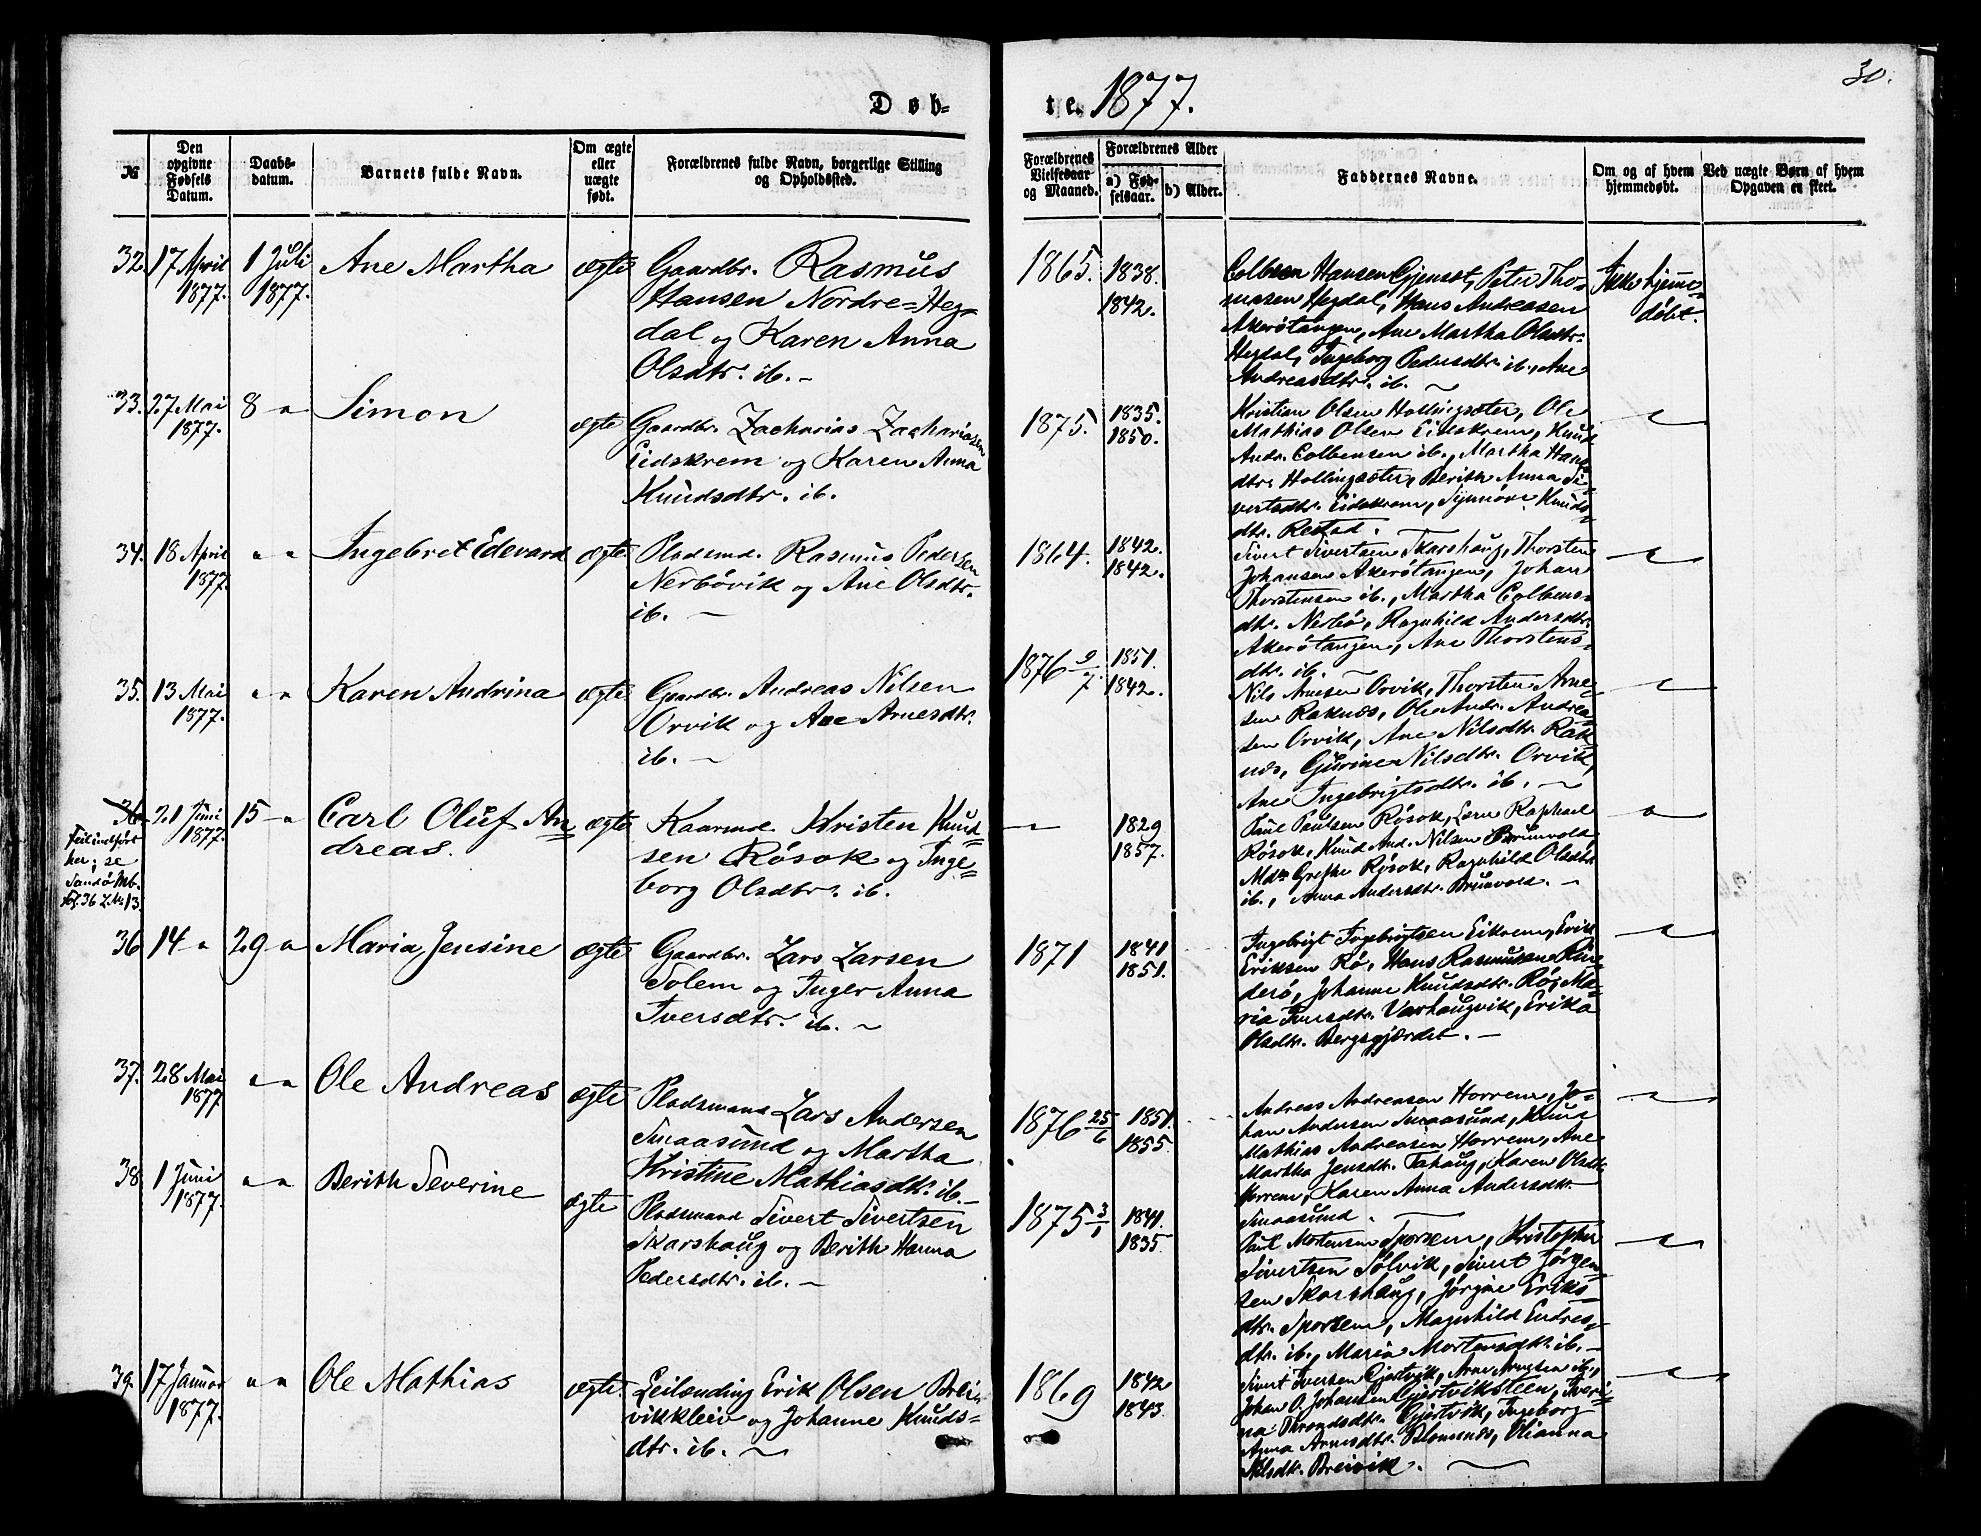 30.
Døb-
te. 1877.
№
Den opgivne Fødsels Datum.
Daabs-datum.
Barnets fulde Navn.
Om ægte eller uægte født.
Forældrenes fulde Navn, borgerlige Stilling og Opholdssted.
Forældrenes Vielsesaar og Maaned.
Forældrenes Alder
a) Fødselsaar.
b) Alder.
Faddernes Navne.
Om og af hvem hjemmedøbt.
Ved uægte Børn af hvem Opgaven er skeet.
32. 17 April 1877. 1 Juli 1877. Ane Martha ægte
Gaardbr. Rasmus
Hansen Nordre=Heg=
dal og Karen Anna
Olsdtr. ib. –
1865. 1838.
1842.
Colbsen Hansen Gjensət, Peter Tho=
masen Hegdal, Hans Andreasen
Akerötangen, Ane Martha Olsdtr.
Hegdal, Ingeborg Pedersdtr. ib., Ane
Andreasdtr. ib.
Ikke hjemme=
döbt.
33. 27 Mai 1877. 8 " Simon ægte
Gaardbr. Zacharias Zachariassen
Eidskrem og Karen Anna
Knudsdtr. ib.
1875. 1835.
1850.
Kristian Olsen Hollingsæter, Ole
Mathias Olsen Eidskrem, Knud
Andr. Colbensen ib., Martha Hans=
dtr. Hollingsæter, Berith Anna Si=
vertsdtr. Eidskrem, Synnöve Knuds=
dtr. Restad.
34. 18 April 1877. " " Ingebret Edevard ægte
Pladsmd. Rasmus Pedersen
Nerbövik og Ane Olsdtr.
ib. –
1864. 1842.
1842.
Sivert Sivertsen Skarshaug, Thorsten
Johansen Akerötangen, Johan
Thorstensen ib., Martha Colbens=
dtr. Nerbö, Ragnhild Andersdtr.
Akerötangen, Ane Thorstens=
dtr. ib. –
35. 13 Mai 1877. " " Karen Andrina ægte
Gaardbr. Andreas Nilsen
Orvik og Ane Arnesdtr.
ib. –
1876 9/7. 1851.
1842.
Nils Arnesen Orvik, Thorsten Arne=
sen Raknæs, Ole Andr. Andrea=
sen Orvik, Ane Nilsdtr. Rak
næs, Gurine Nilsdtr. Orvik,
Ane Ingebrigtsdtr. ib. –
36. 21 Juni 1877. 15 " Carl Oluf An=
dreas. ægte
Feilindført
her; se
Sandö Mb.
Fol. 36 L. Nr. 13.
Kaarmd. Kristen Knud=
sen Rösok og Inge=
borg Olsdtr. ib.
– 1829
1857.
Paul Paulsen Rösok, Lars Raphael
Rösok, Knud And. Nilsen Brunvold
Md. Grethe Rösok, Ragnhild Olsdtr.
ib., Anna Andersdtr. Brunvold. –
36 14 " 29 " Maria Jensine ægte
Gaardbr. Lars Larsen
Solem og Inger Anna
Iversdtr. ib. –
1871 1841
1851.
Ingebrigt Ingebrigtsen Eikrem, Erik
Eriksen Rö, Hans Rasmussen Rin=
derö, Johanne Knudsdtr. Rö, Ma=
ria Iversdtr. Varhaugvik, Erika
Olsdtr. Bergsgjærdet. –
37. 28 Mai 1877 " " Ole Andreas ægte
Pladsmand Lars Andersen
Smaasund og Martha
Kristine Mathiasdtr. ib. –
1876 25/6 1851.
1855.
Andreas Andreasen Horrem, Jo=
han Andersen Smaasund, Knud
Mathias Andreasen Horrem, Ane
Martha Jensdtr. Tahaug, Karen Olsdtr.
Horrem, Karen Anna Andersdtr.
Smaasund.
38. 1 Juni 1877. " " Berith Severine ægte
Pladsmand Sivert Sivertsen
Skarshaug og Berith Hanna
Pedersdtr. ib. –
1875 3/1 1841.
1835.
Paul Mortensen Sporsem, Kristopher
Sivertsen Solvik, Sivert Jörgen=
sen Skarshaug, Jörgine Eriks=
dtr. Sporsem, Magnhild Endres=
dtr. ib., Maria Mortensdtr. ib. –
39. 17 Januar 1877. " " Ole Mathias ægte.
Leilending Erik Olsen Brei=
vikkleiv og Johanne Knuds=
dtr. ib. –
1869 1842
1843.
Sivert Iversen Gjertvik, Arne Arnesen ib.,
Johan O. Johansen Gjertviksteen, Iveri=
na Throndsdtr. Gjertvik, Ingeborg
Anna Arnesdtr. Blomnæs, Olianna
Nilsdtr. Breivik. –